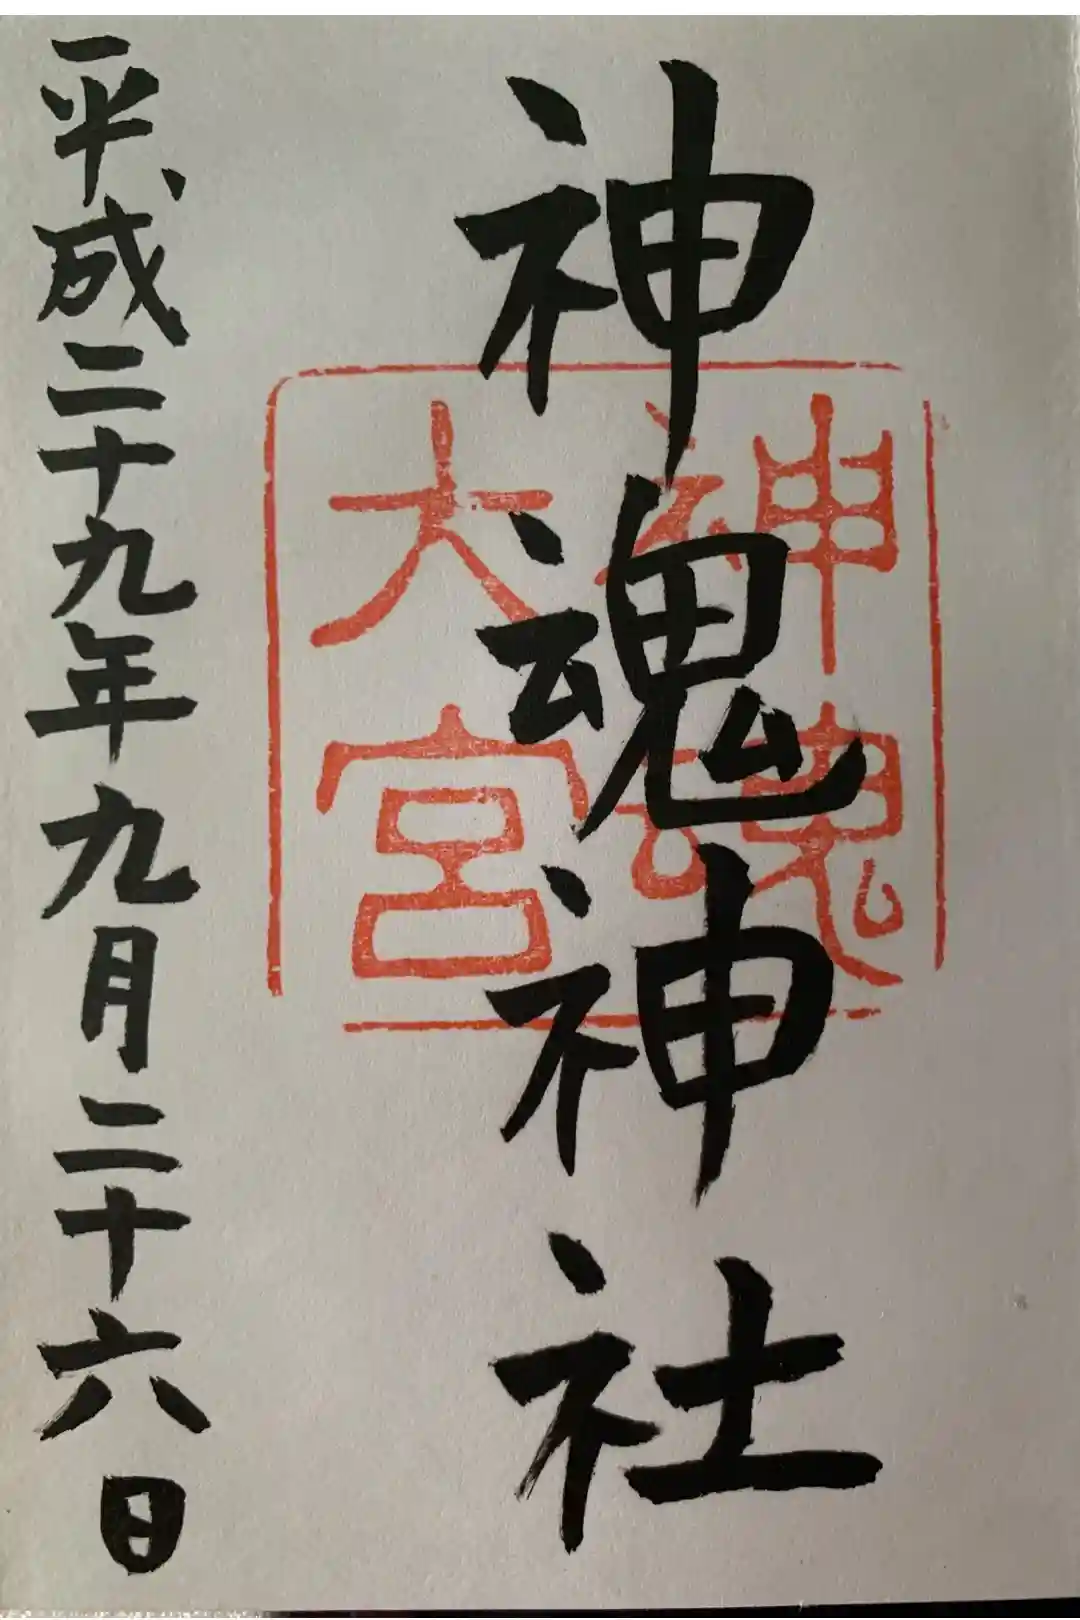 神魂神社
神魂
大宮
平成二十九年九月二十六日